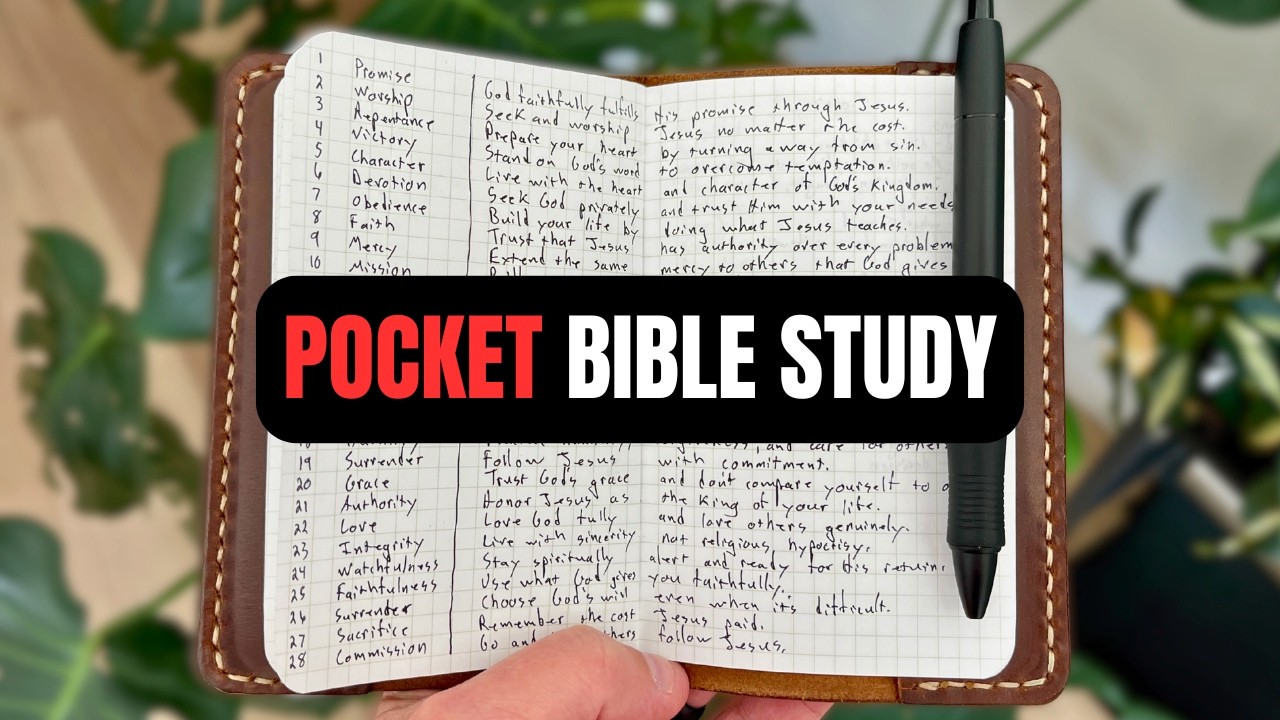 1 Promise God faithfully fulfills His promise through Jesus.
2 Worship Seek and worship Jesus no matter the cost.
3 Repentance Prepare your heart by turning away from sin.
4 Victory Stand on God's word to overcome temptation.
5 Character Live with the heart and character of God's Kingdom.
6 Devotion Seek God privately and trust Him with your needs
7 Obedience Build your life by doing what Jesus teaches.
8 Faith Trust that Jesus has authority over every problem
9 Mercy Extend the same mercy to others that God gives
10 Mission
POCKET BIBLE STUDY
19 Surrender Follow Jesus with commitment.
20 Grace Trust Gods grace and dont compare yourself to
21 Authority Honor Jesus as the King of your life.
22 Love Love God fully and love others genuinely.
23 Integrity Live with sincerity not religious hypoctisy.
24 Watchfulness Stay spiritually alert and ready for His return.
25 Faithfulness Use what God gives you faithfully.
26 Surrender Choose God's will even when its difficult.
27 Sacrifice Remember the cost Jesus paid.
28 Commission Go and follow Jesus.